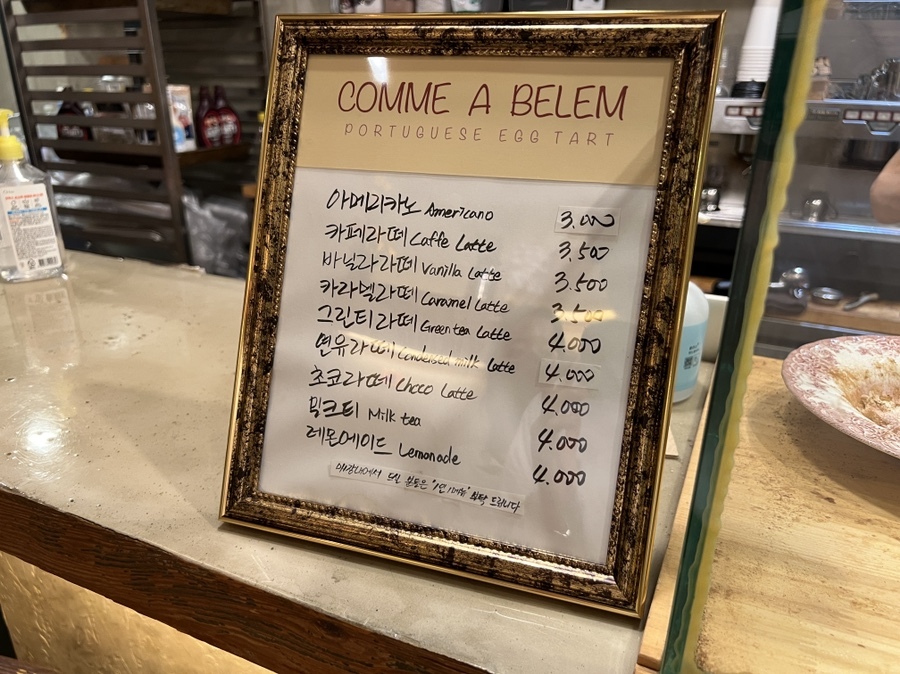 COMME A BELEM
PORTUGUESE EGG TART
아메리카노 Americano 3.000
카페라떼 Caffe Latte 3.500
바닐라라떼 Vanilla Latte 3.500
카라멜라떼 Caramel Latte 3.500
그린티라떼 Green tea Latte 4.000
연유라떼 Condensed milk Latte 4.000
초코라떼 Choco Latte 4.000
밀크티 Milk tea 4.000
레몬에이드 Lemonade 4.000
매장내에서 드실 분들은 "1인 1메뉴" 부탁 드립니다